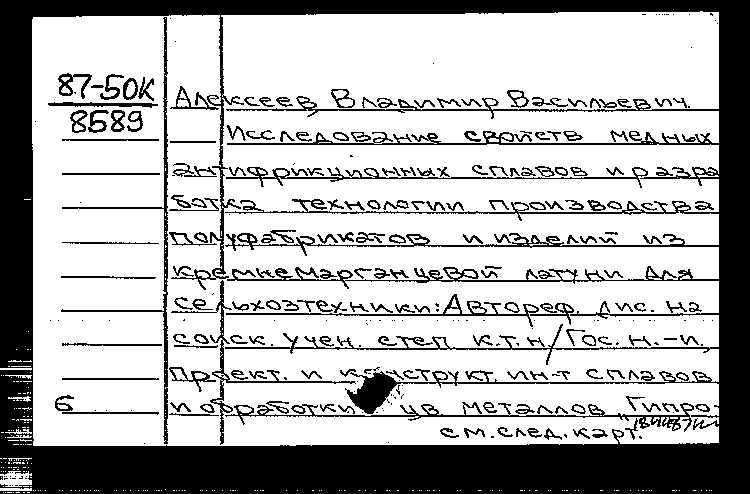 87-50К
8589
Алексеев, Владимир Васильевич.
Исследование свойств медных
антифрикционных сплавов и разра
ботка технологии производства
полуфабрикатов и изделий из
кремнемарганцевой латуни для
сельхозтехники: Автореф. дис. на
соиск. учен. степ к.т.н/Гос. н.-и.,
проект. и конструкт. ин-т сплавов
6
и обработки цв. металлов "Гипро-
см. след. карт.